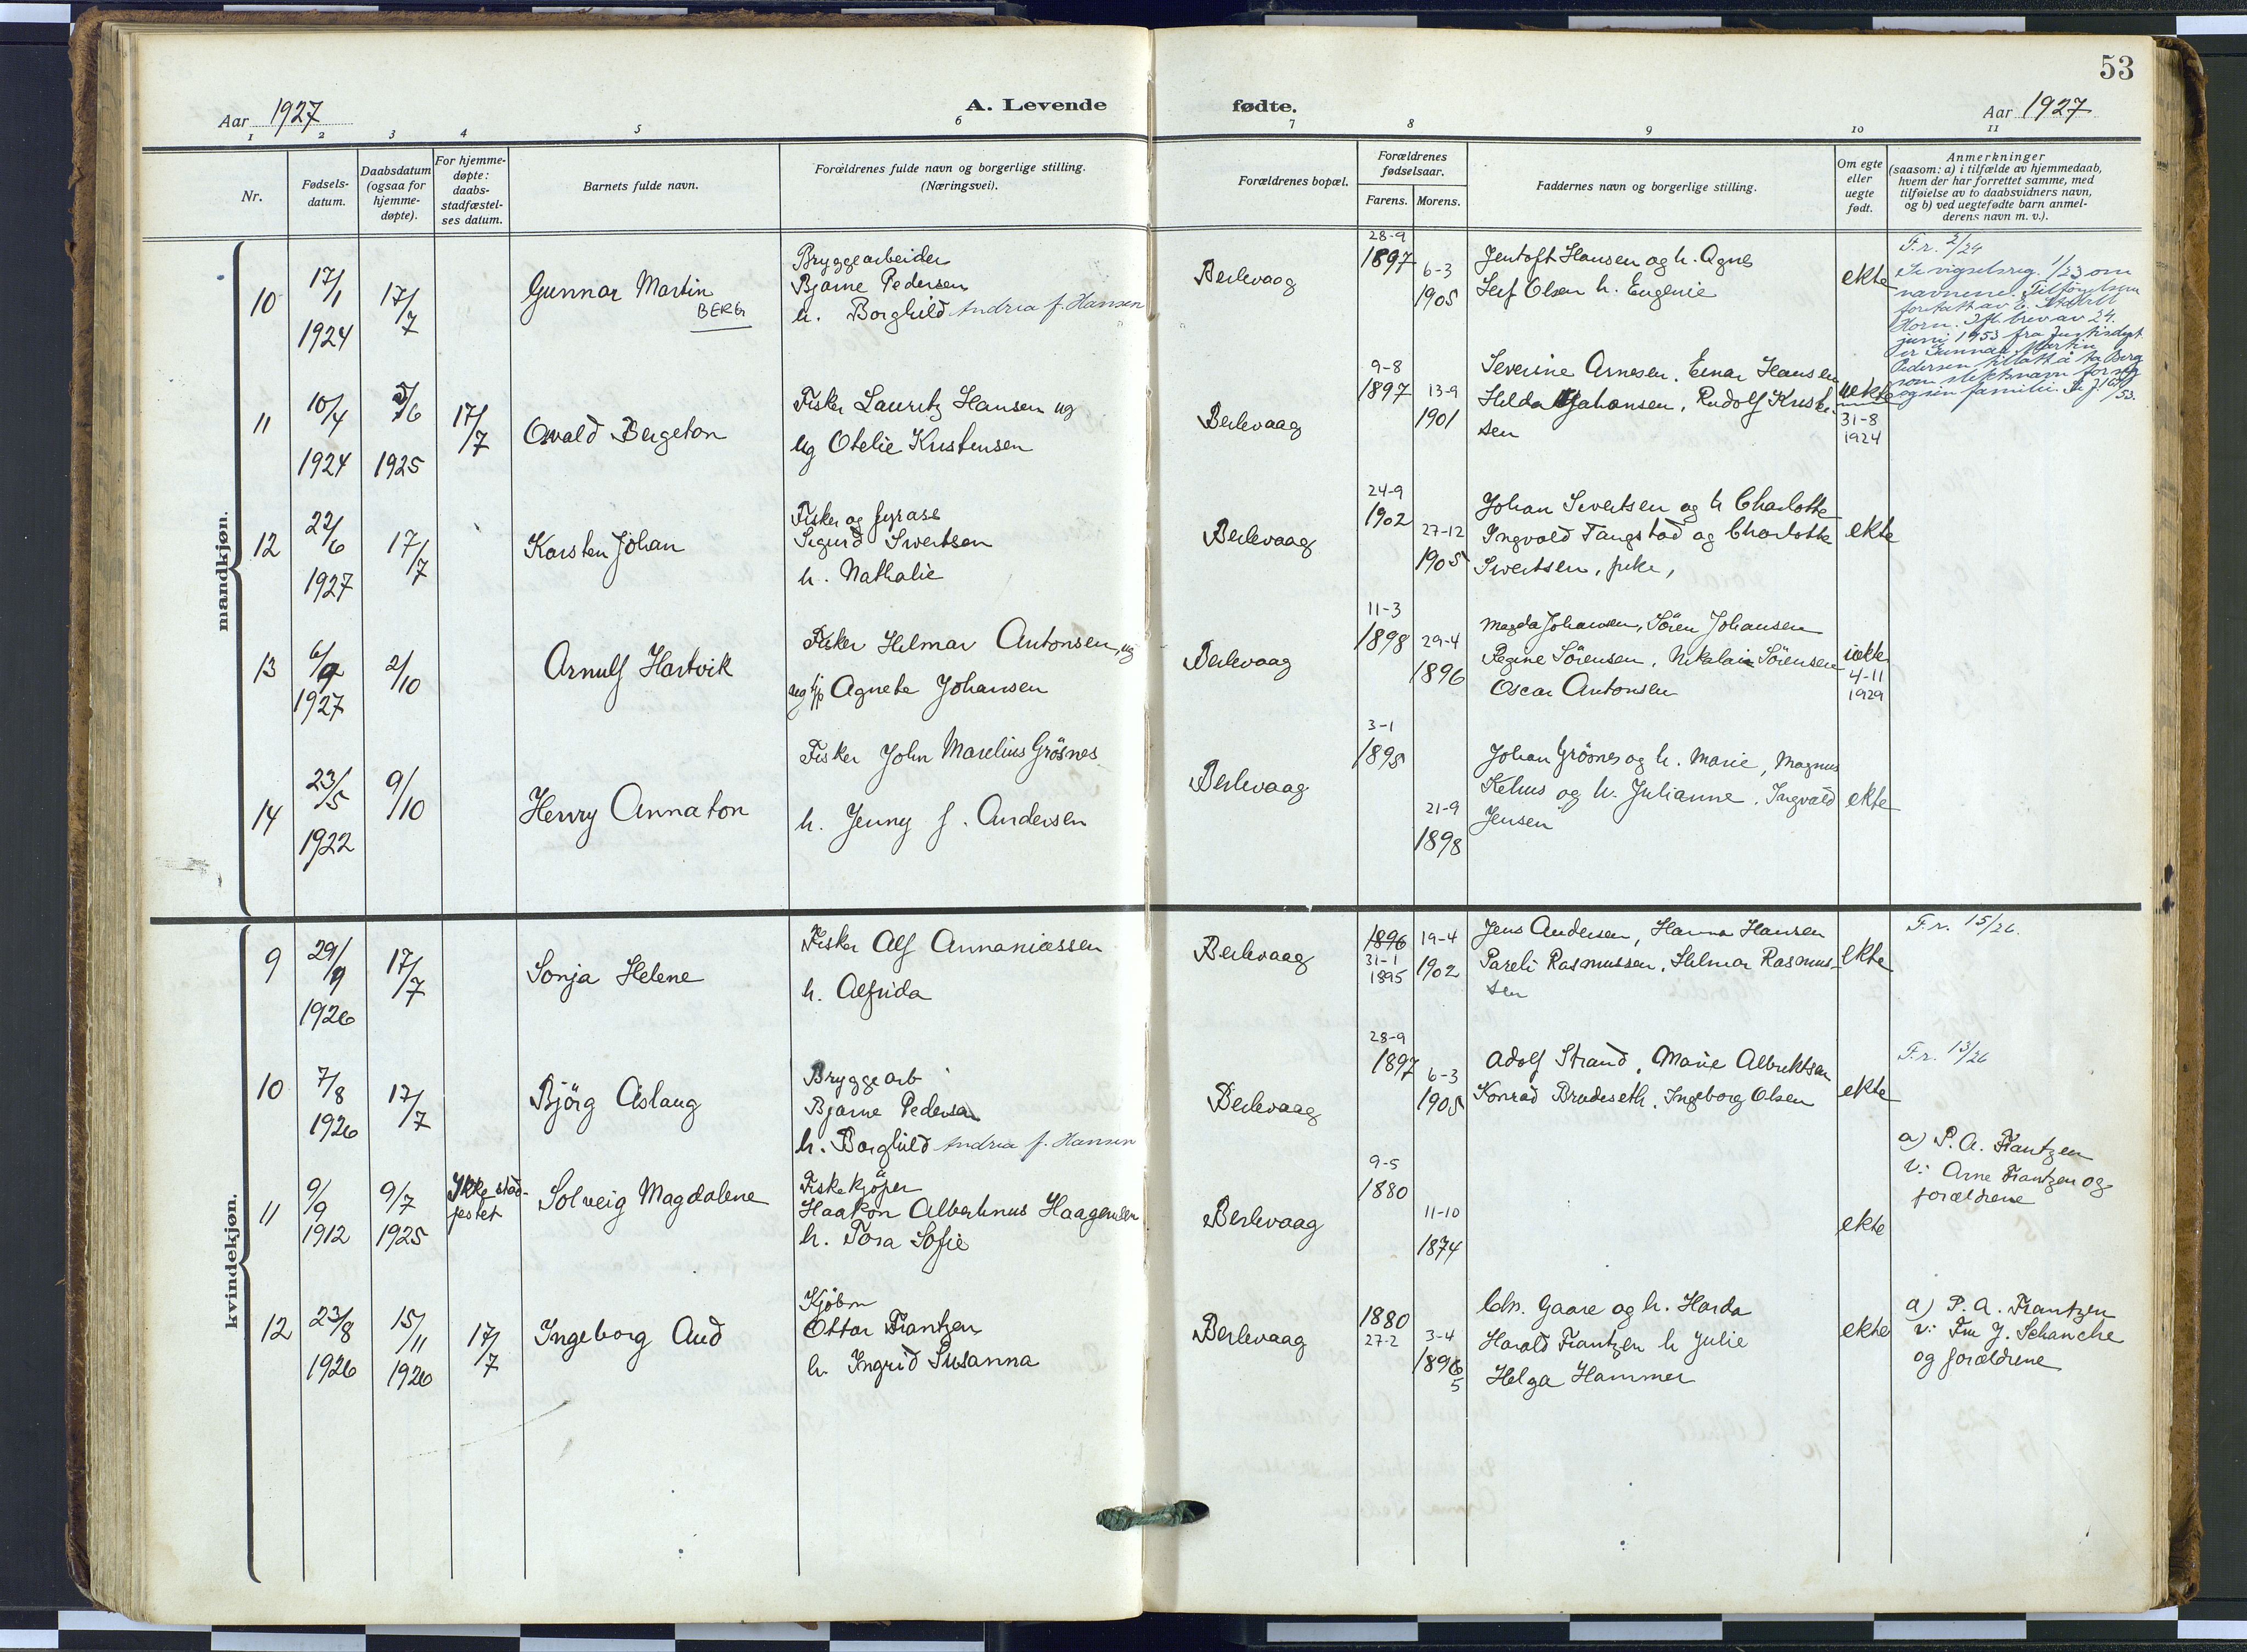 53
Aar 1927
A. Levende
fødte.
Aar 1927
1 2 3 4 5 6 7 8 9 10 11
Nr.
Fødsels-
datum.
Daabsdatum
(ogsaa for
hjemme-
døpte).
For hjemme-
døpte:
daabs-
stadfæstel-
ses datum.
Barnets fulde navn.
Forældrenes fulde navn og borgerlige stilling.
(Næringsvei).
Forældrenes bopæl.
Forældrenes
fødselsaar.
Farens. Morens.
Faddernes navn og borgerlige stilling.
Om egte
eller
uegte
født.
Anmerkninger
(saasom: a) i tilfælde av hjemmedaab,
hvem der har forrettet samme, med
tilføielse av to daabsvidners navn,
og b) ved uegtefødte barn anmel-
derens navn m. v.).
mandkjøn.
10
17/1
1924
17/7
Gunnar Martin
BERG
Bryggearbeider
Bjarne Pedersen
h. Borghild Andrea f. Hansen
Berlevaag
28-9
1897
6-3
1905
Jentoft Hansen og h. Agnes
Leif Olsen h. Eugenie
ekte
F.r. 2/24
Se vigselsreg. 1/23 om
navnene. Tilføyelsen
foretatt av
Horn. Ifl. brev av 24.
juni 1953 fra Justisdept
er Gunnar Martin
Pedersen tillatt å ta Berg
som slektsnavn for seg
og sin familie.
11
10/4
1924
5/6
1925
17/7
Osvald Bergeton
Fisker Lauritz Hansen ug
ug Otelie Kristensen
Berlevaag
9-8
1897
13-9
1901
Severine Arnesen, Einar Hansen
Hilda Johansen, Rudolf Kristen-
sen
uekte
31-8
1924
12
22/6
1927
17/7
Karsten Johan
Fisker og
Sigurd Sivertsen
h. Nathalie
Berlevaag
24-9
1902
27-12
1905
Johan Sivertsen og h Charlotte
Ingvald Tangstad og Charlotte
Sivertsen, pike,
ekte
13
6/9
1927
2/10
Arnulf Hartvik
Fisker Hilmar Antonsen, ug
ug tjp Agnete Johansen
Berlevaag
11-3
1898
29-4
1896
Magda Johansen, Sören Johansen
Regine Sörensen, Nikolai Sörensen
Oscar Antonsen
uekte
4-11
1929
14
23/5
1922
9/10
Henry Annaton
Fisker John Marelius Grösnes
h. Jenny f. Andersen
Berlevaag
3-1
1895
21-9
1898
Johan Grösnes og h. Marie, Magnus
Kehus og h. Julianne. Ingvald
Jensen
ekte
kvindekjøn.
9
29/9
1926
17/7
Sonja Helene
Fisker Alf Annaniassen
h. Alfrida
Berlevaag
1896
31-1
1895
19-4
1902
Jens Andersen, Hanna Hansen
Pareli Rasmussen, Hilmar Rasmus-
sen
ekte
F.r. 15/26.
10
7/8
1926
17/7
Björg Aslaug
Bryggearb
Bjarne Pedersen
h. Borghild Andrea f. Hansen
Berlevaag
28-9
1897
6-3
1905
Adolf Strand, Marie Albriktsen
Konrad Brudeseth, Ingeborg Olsen
ekte
F.r. 13/26
11
9/9
1912
9/7
1925
Ikke stad-
festet
Solveig Magdalene
Fiskekjöper
Haakon Albertinus Haagensen
h. Tora Sofie
Berlevaag
9-5
1880
11-10
1874
ekte
a) P. A. Frantzen
V: Arne Frantzen og
forældrene
12
23/8
1926
15/11
1926
17/7
Ingeborg Aud
Kjöbm
Ottar Frantzen
h. Ingrid Susanna
Berlevaag
1880
27-2
3-4
1896
5
Chr. Gaare og h. Harda
Harald Frantzen h Julie
Helga Hammer
ekte
a) P. A. Frantzen
v: Fru J. Schanche
og forældrene